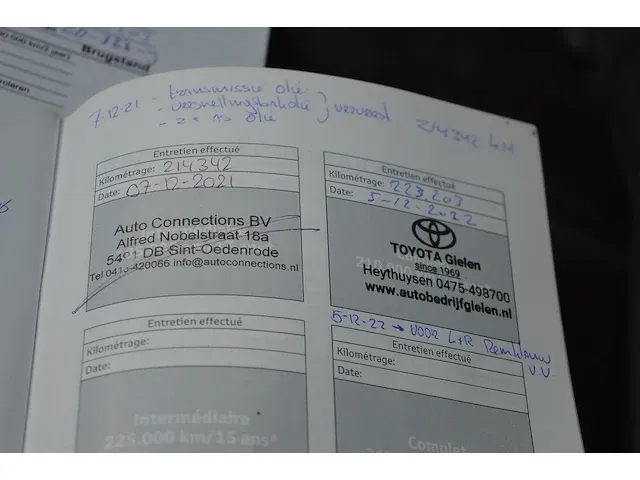 Brugstand
7-12-21 - transmissie olie
- versnellingsbakolie } ververst 214342 KM
Entretien effectué
Kilométrage: 214342
Date: 07-12-2021
Auto Connections BV
Alfred Nobelstraat 18a
5491 DB Sint-Oedenrode
Tel 0413-420066 info@autoconnections.nl
Entretien effectué
Kilométrage: 223.203
Date: 5-12-2022
TOYOTA Gielen
since 1969
Heythuysen 0475-498700
www.autobedrijfgielen.nl
5-12-22 → voor L+R Remklauw
V.V.
Entretien effectué
Kilométrage:
Date:
Intermédiaire
225.000 km/15 ans*
Entretien effectué
Kilométrage:
Date:
Complet